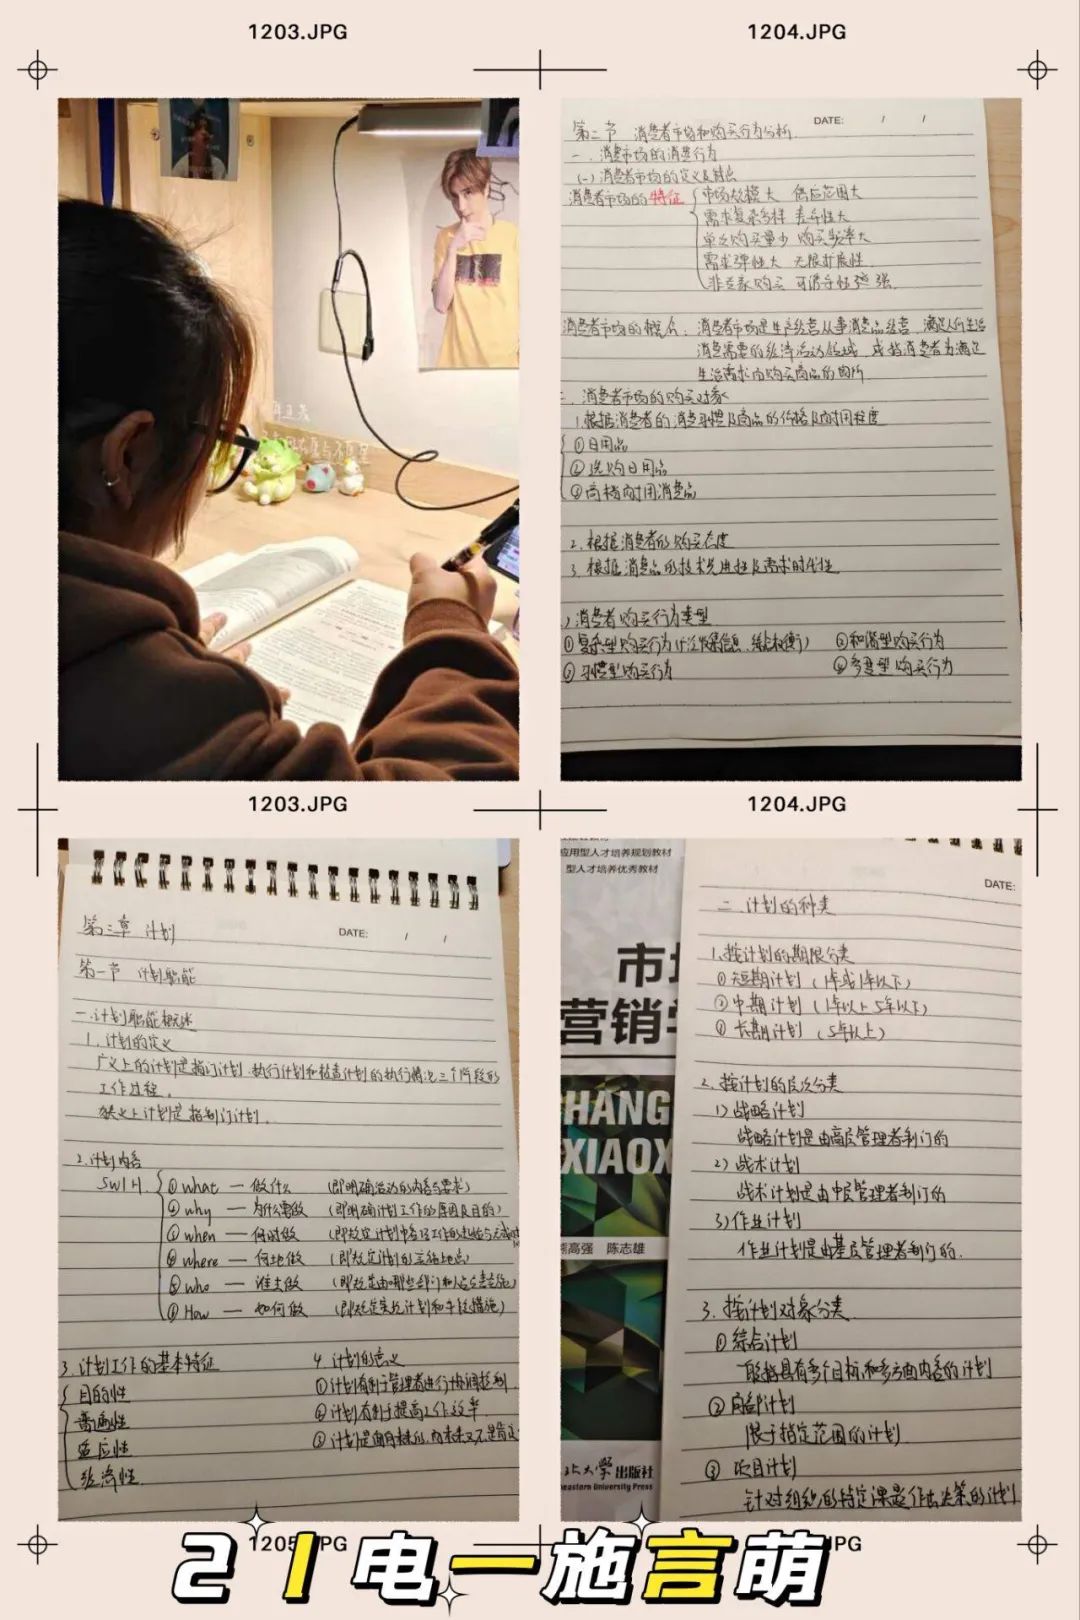 1203.JPG
1204.JPG
DATE: / /
第二节 消费者市场和购买行为分析
一、消费市场的消费行为
(一)消费者市场的定义及特点
消费者市场的特征
市场规模大 供应范围大
需求复杂多样 差异性大
单次购买量少 购买频率大
需求弹性大 无限扩展性
非专家购买 可诱导性强
消费者市场的概念: 消费者市场是生产经营从事消费品经营、满足人们生活
消费需要的经济活动领域, 或指消费者为满足
生活需求而购买商品的场所
二、消费者市场的购买对象
1.根据消费者的消费习惯及商品的价格及耐用程度
①日用品
②选购日用品
③高档耐用消费品
2.根据消费者的购买态度
3.根据消费品的技术先进性及需求时代性
消费者购买行为类型
①复杂型购买行为(广泛收集信息、综合权衡) ③和谐型购买行为
②习惯型购买行为 ④多变型购买行为
1203.JPG
1204.JPG
第三章 计划
DATE: / /
第一节 计划职能
一.计划职能概述
1.计划的定义
广义上的计划是指制订计划、执行计划和检查计划的执行情况三个阶段的
工作过程。
狭义上计划是指制订计划.
2.计划内容
5W1H
①what — 做什么 (即明确活动的内容与要求)
②why — 为什么要做 (即明确计划工作的原因及目的)
③when — 何时做
④where — 何地做 (即规定计划的实施地点)
⑤who — 谁去做 (即规定由哪些部门和人员负责实施)
⑥How — 如何做 (即规定实施计划和手段措施)
3.计划工作的基本特征
目的性
普遍性
适应性
经济性
4.计划的意义
①计划有利于管理者进行协调控制
②计划有利于提高工作效率
应用型人才培养规划教材
型人才培养优秀教材
市场
营销学
HANG
XIAOX
熊高强 陈志雄
大学出版社
eastern University Press
DATE:
二.计划的种类
1.按计划的期限分类
①短期计划 (1年或1年以下)
②中期计划 (1年以上5年以下)
③长期计划 (5年以上)
2.按计划的层次分类
1)战略计划
战略计划是由高层管理者制订的
2)战术计划
战术计划是由中层管理者制订的
3)作业计划
作业计划是由基层管理者制订的.
3.按计划对象分类
①综合计划
一般指具有多个目标和多方面内容的计划
②局部计划
限于指定范围的计划
③项目计划
针对组织的特定课题作出决策的计划
1205.JPG
21电一施言萌